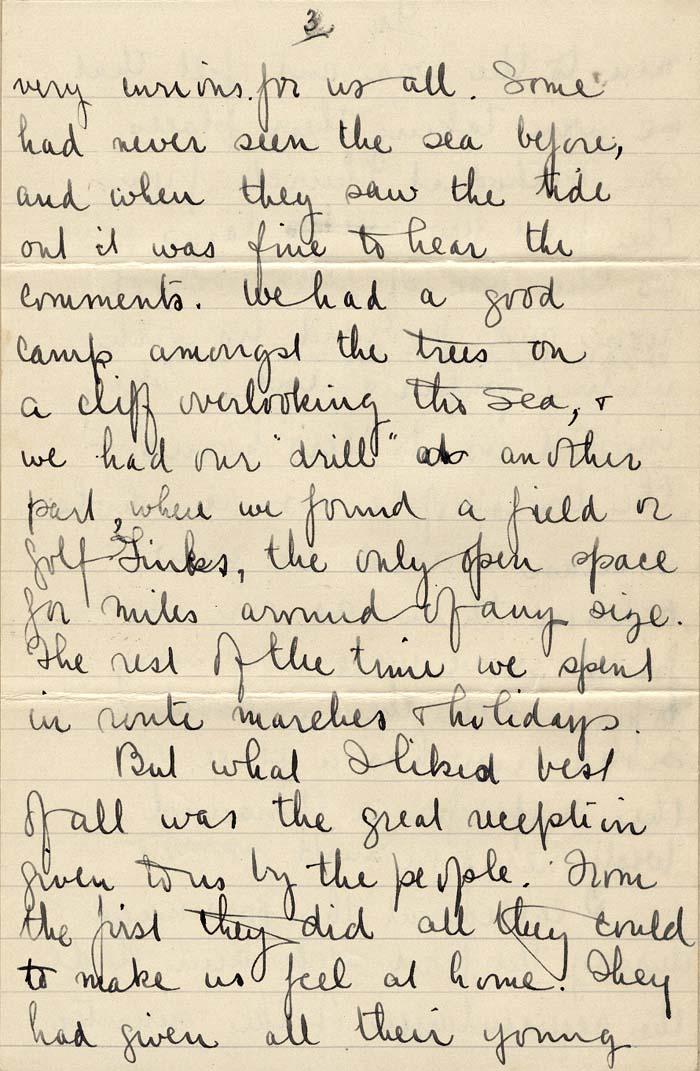 3
very curious for us all. Some
had never seen the sea before,
and when they saw the tide
out it was fine to hear the
comments. We had a good
camp amongst the trees on
a cliff overlooking the sea, &
we had our "drill" at another
part, where we found a field or
golf links, the only open space
for miles around of any size.
The rest of the time we spent
in route marches & holidays.
But what I liked best
of all was the great reception
given to us by the people. From
the first they did all they could
to make us feel at home. They
had given all their young